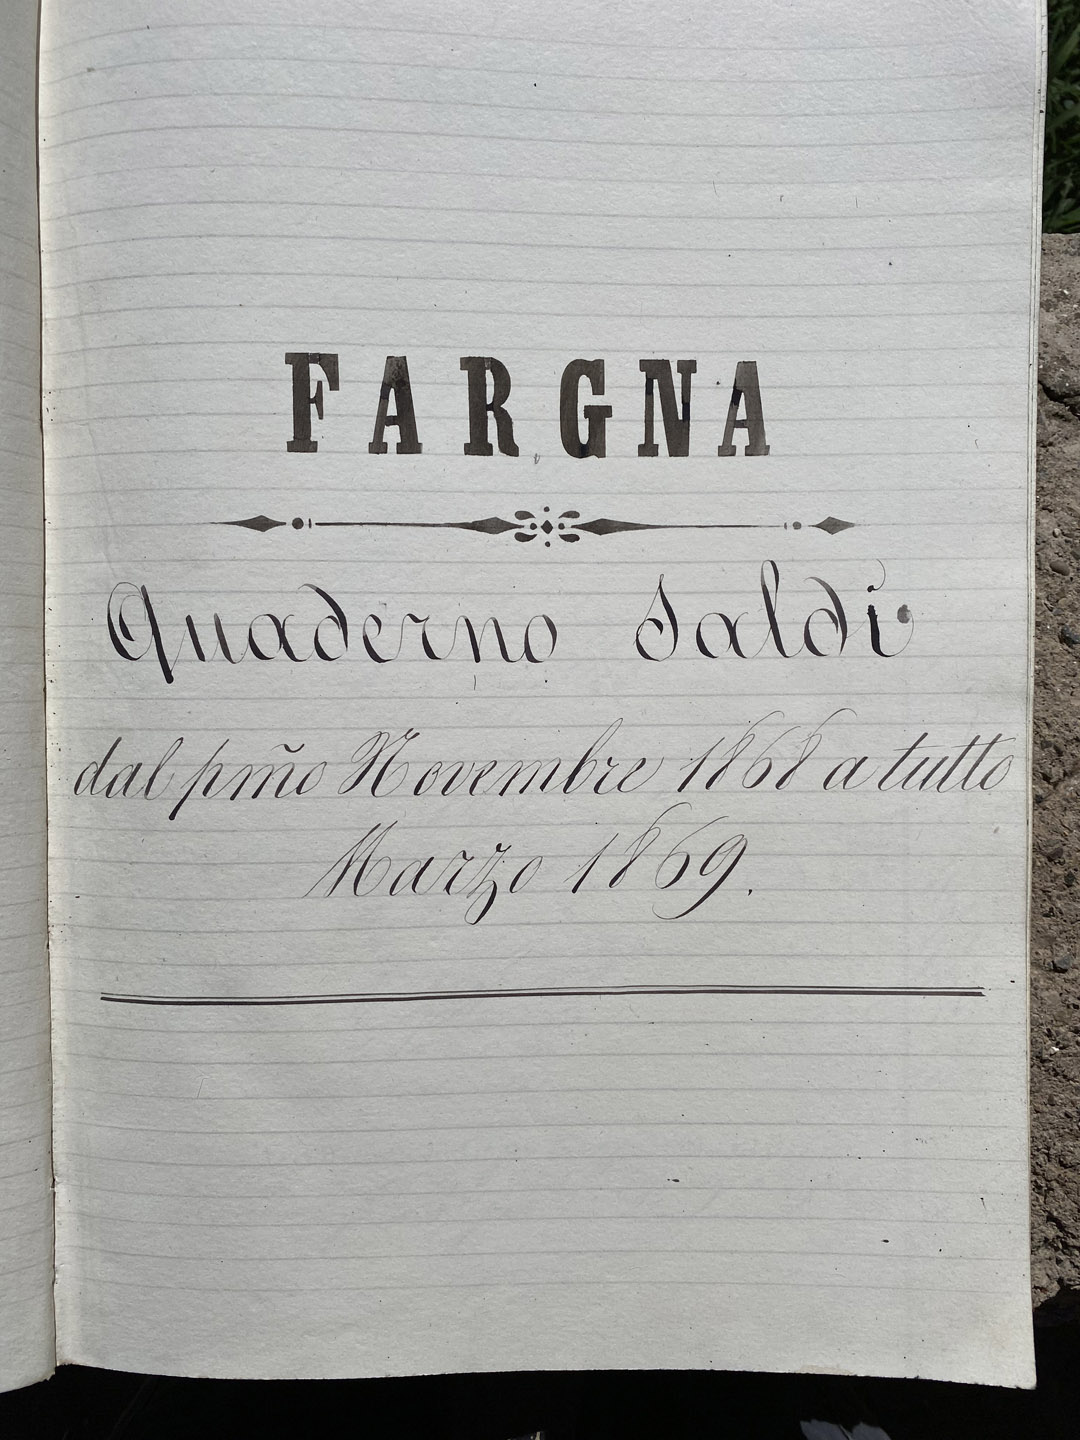 FARGNA
Quaderno Saldi
dal pm̃o Novembre 1868 a tutto
Marzo 1869.